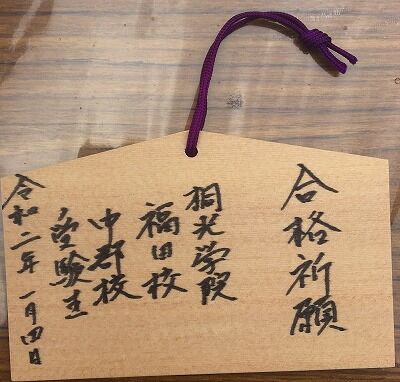 合格祈願
桐光学院
福田校
中郡校
受験生
令和二年 一月四日